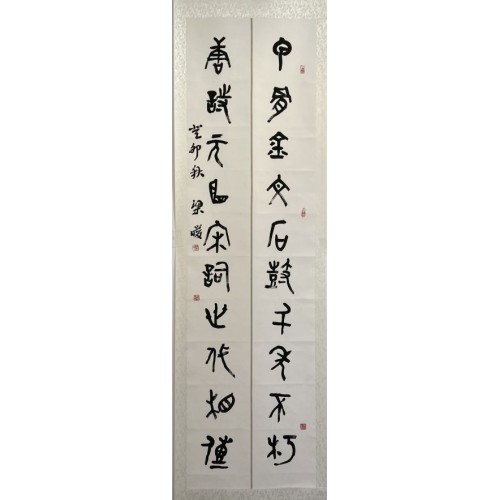 甲骨金文石鼓千年不朽
唐詩元曲宋詞世代相傳
癸卯秋 梁